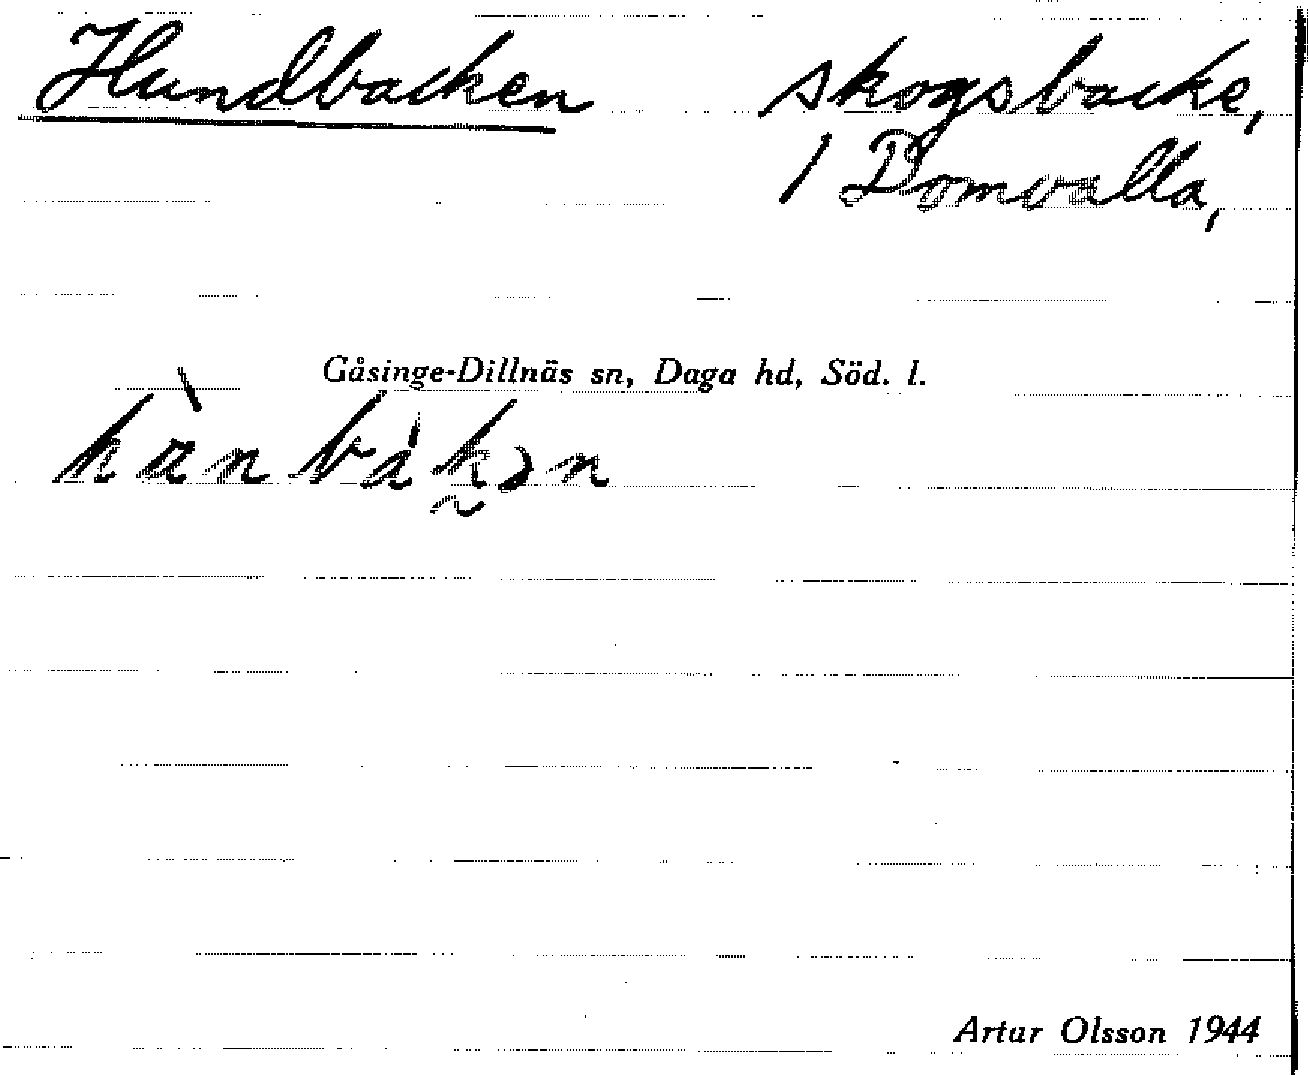 Hundbacken skogsbacke,
1 Domvalla,
Gåsinge-Dillnäs sn, Daga hd, Söd. l.
Artur Olsson 1944